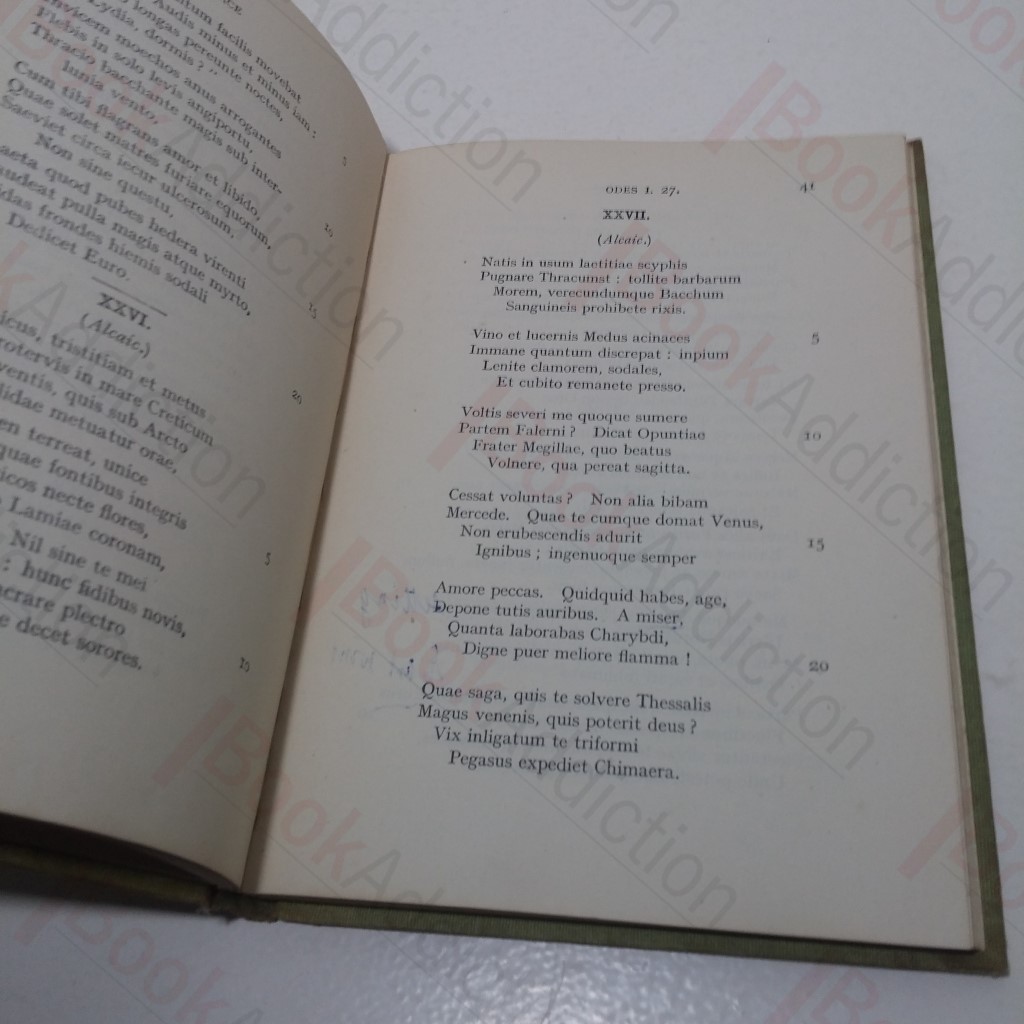 CE
tum facilis movebat
Audis minus et minus iam:
longas pereunte noctes,
Lydia, dormis? "
Invicem moechos anus arrogantes
Flebis in solo levis angiportu,
Thracio bacchante magis sub inter-
lunia vento,
Cum tibi flagrans amor et libido,
Quae solet matres furiare equorum,
Saeviet circa iecur ulcerosum,
Non sine questu,
Laeta quod pubes hedera virenti
audeat pulla magis atque myrto,
idas frondes hiemis sodali
Dedicet Euro.
5
10
15
20
XXVI.
(Alcaic.)
icus, tristitiam et metus
rotervis in mare Creticum
ventis, quis sub Arcto
idae metuatur orae,
en terreat, unice
quae fontibus integris
icos necte flores,
Lamiae coronam,
Nil sine te mei
: hunc fidibus novis,
crare plectro
e decet sorores.
5
10
ODES I. 27. 41
XXVII.
(Alcaic.)
Natis in usum laetitiae scyphis
Pugnare Thracumst : tollite barbarum
Morem, verecundumque Bacchum
Sanguineis prohibete rixis.
Vino et lucernis Medus acinaces 5
Immane quantum discrepat : inpium
Lenite clamorem, sodales,
Et cubito remanete presso.
Voltis severi me quoque sumere
Partem Falerni ? Dicat Opuntiae 10
Frater Megillae, quo beatus
Volnere, qua pereat sagitta.
Cessat voluntas ? Non alia bibam
Mercede. Quae te cumque domat Venus,
Non erubescendis adurit 15
Ignibus ; ingenuoque semper
Amore peccas. Quidquid habes, age,
Depone tutis auribus. A miser,
Quanta laborabas Charybdi,
Digne puer meliore flamma ! 20
Quae saga, quis te solvere Thessalis
Magus venenis, quis poterit deus ?
Vix inligatum te triformi
Pegasus expediet Chimaera.
BookAddiction